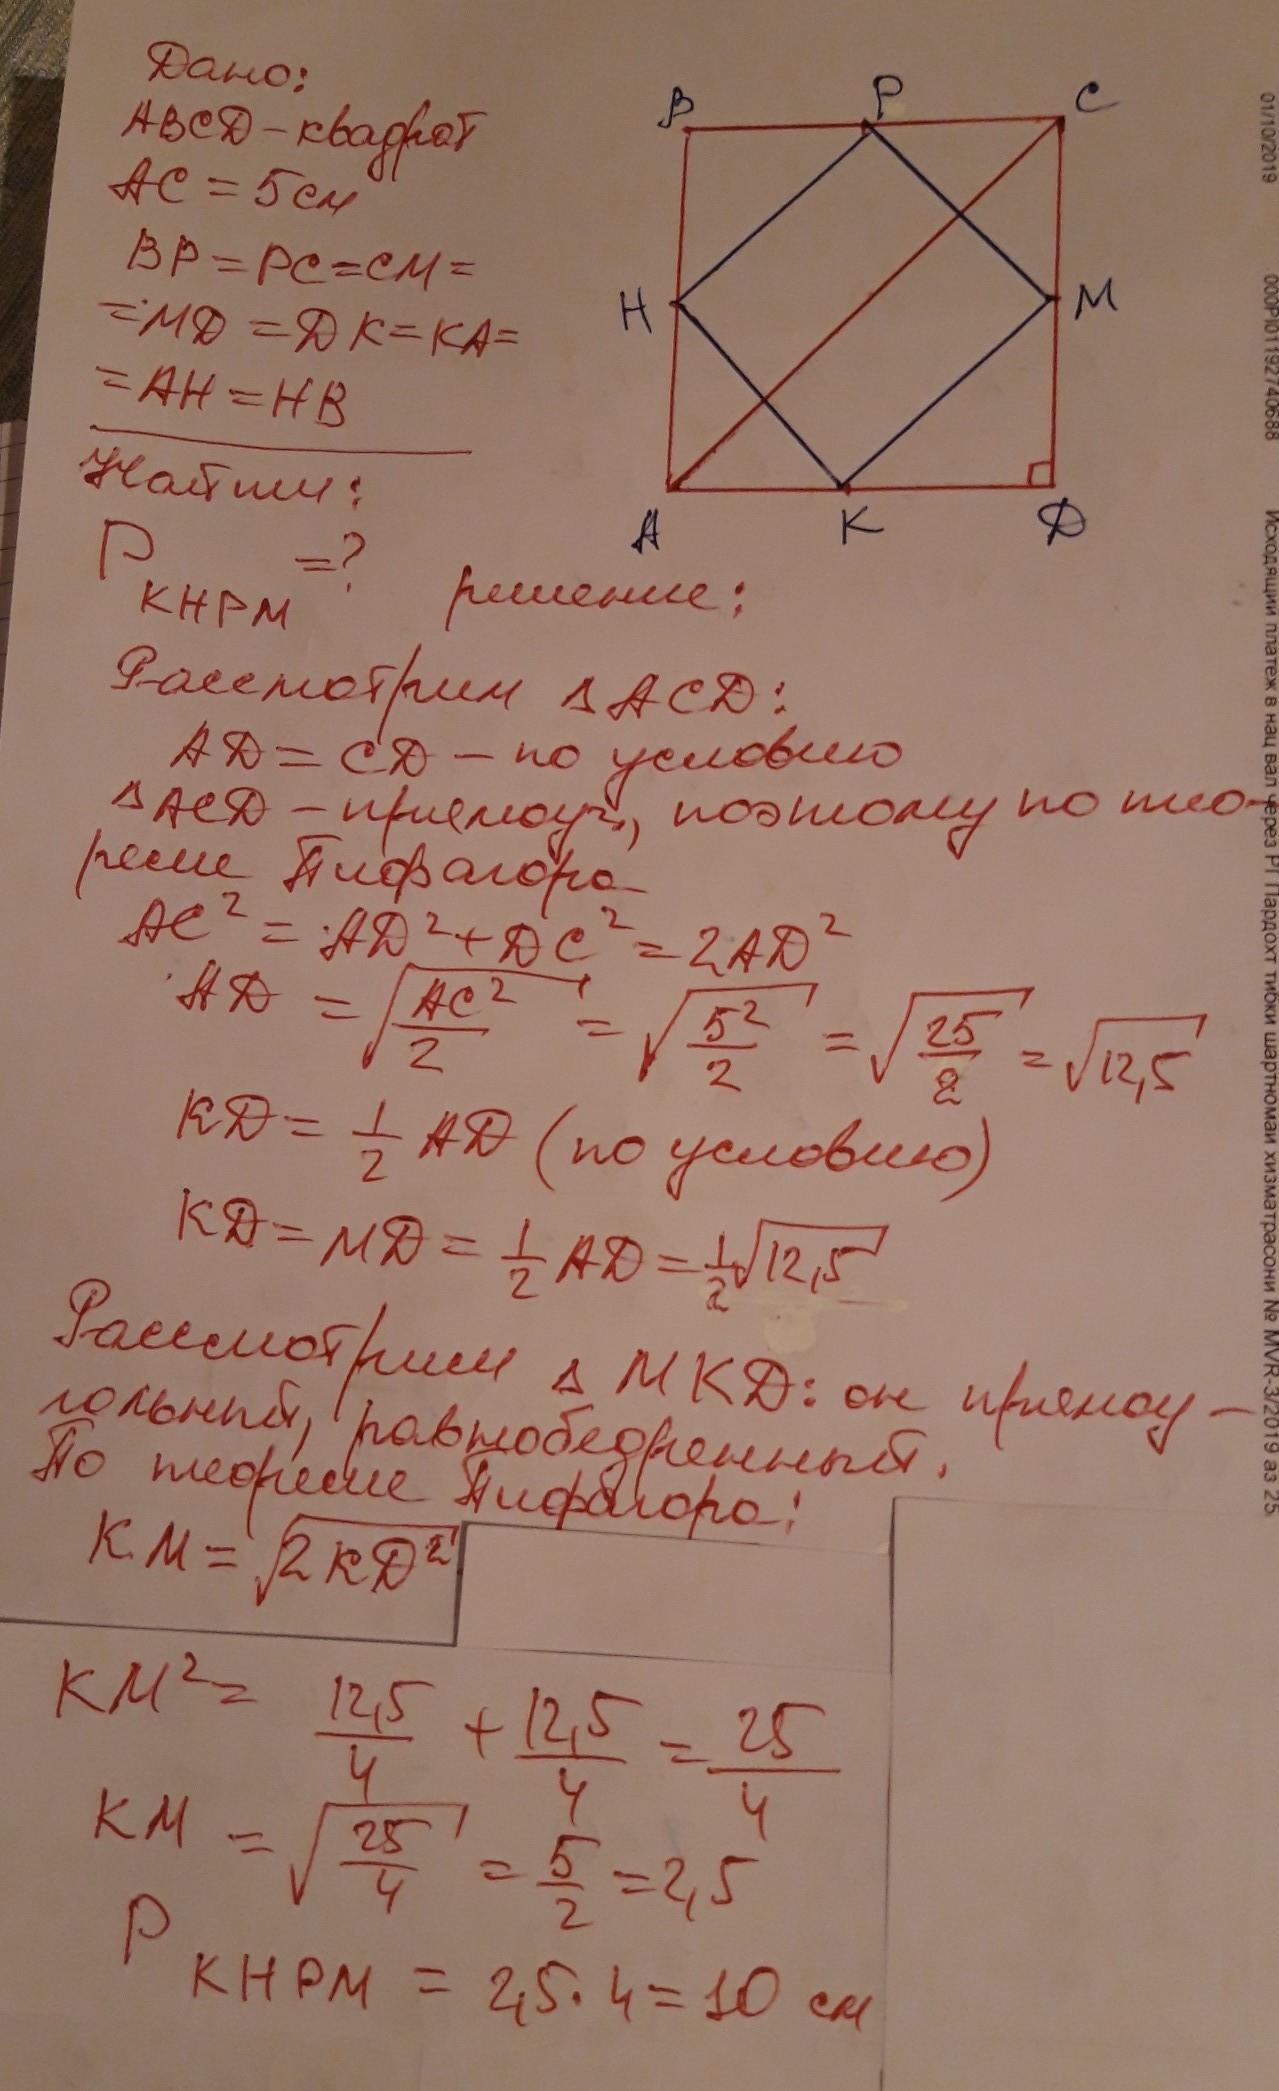 Дано:
ABCD - квадрат
AC = 5 см
BP = PC = CM =
= MD = DK = KA =
= AH = HB
Найти:
P KHPM = ?
решение:
B P C
H M
A K D
Рассмотрим ΔACD:
AD = CD - по условию
ΔACD - прямоуг., поэтому по тео-
реме Пифагора
AC² = AD² + DC² = 2AD²
AD = √(AC²/2) = √(5²/2) = √(25/2) = √12,5
KD = 1/2 AD (по условию)
KD = MD = 1/2 AD = 1/2 √12,5
Рассмотрим Δ MKD: он прямоу-
гольный, равнобедренный.
По теореме Пифагора:
KM = √2KD²
KM² = 12,5/4 + 12,5/4 = 25/4
KM = √(25/4) = 5/2 = 2,5
P KHPM = 2,5 · 4 = 10 см
01/10/2019 000PI01192740688 Исходящий платеж в нац вал через РГ Пардохт тибки шартномаи хизматрасони № MVR-3/2019 аз 25